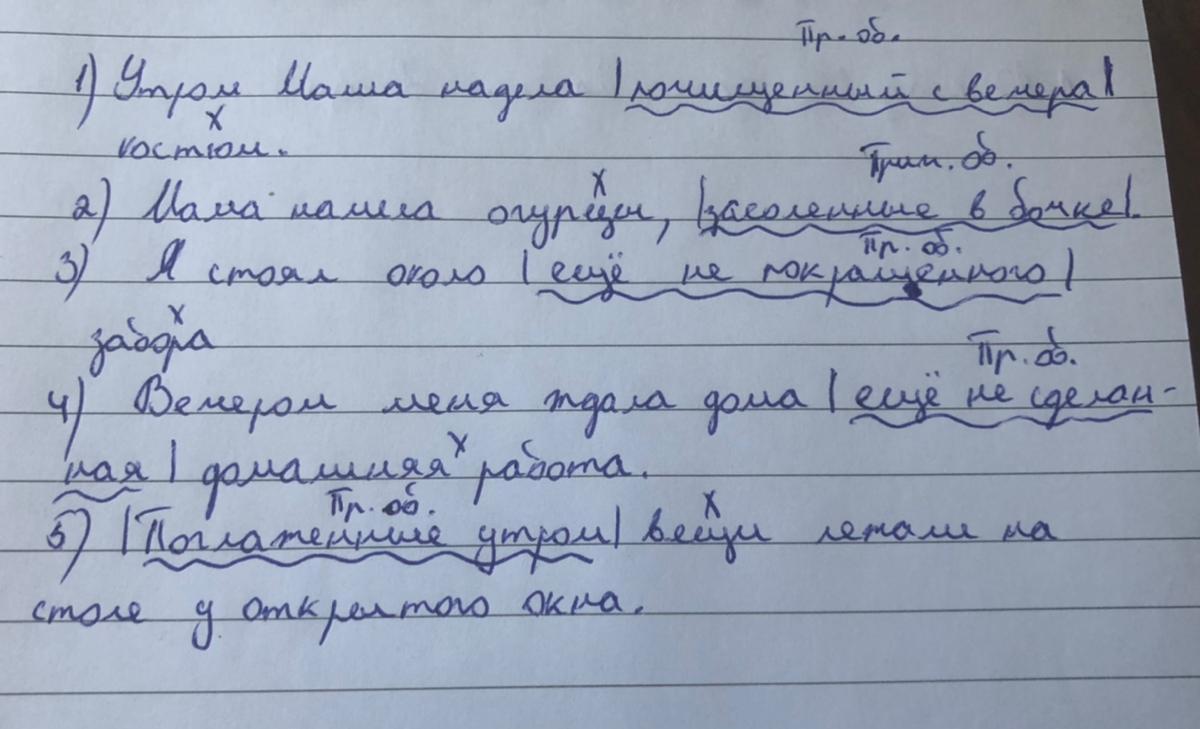 Пр. об.
1) Утром Маша надела |почищенный с вечера|
х
костюм.
Прич. об.
х
2) Мама нашла огурцы, |засоленные в бочке|.
Пр. об.
3) Я стоял около |ещё не покращенного|
х
забора
Пр. об.
4) Вечером меня ждала дома |ещё не сделан-
х
ная| домашняя работа.
Пр. об.
х
5) |Поглаженные утром| вещи лежали на
столе у открытого окна.